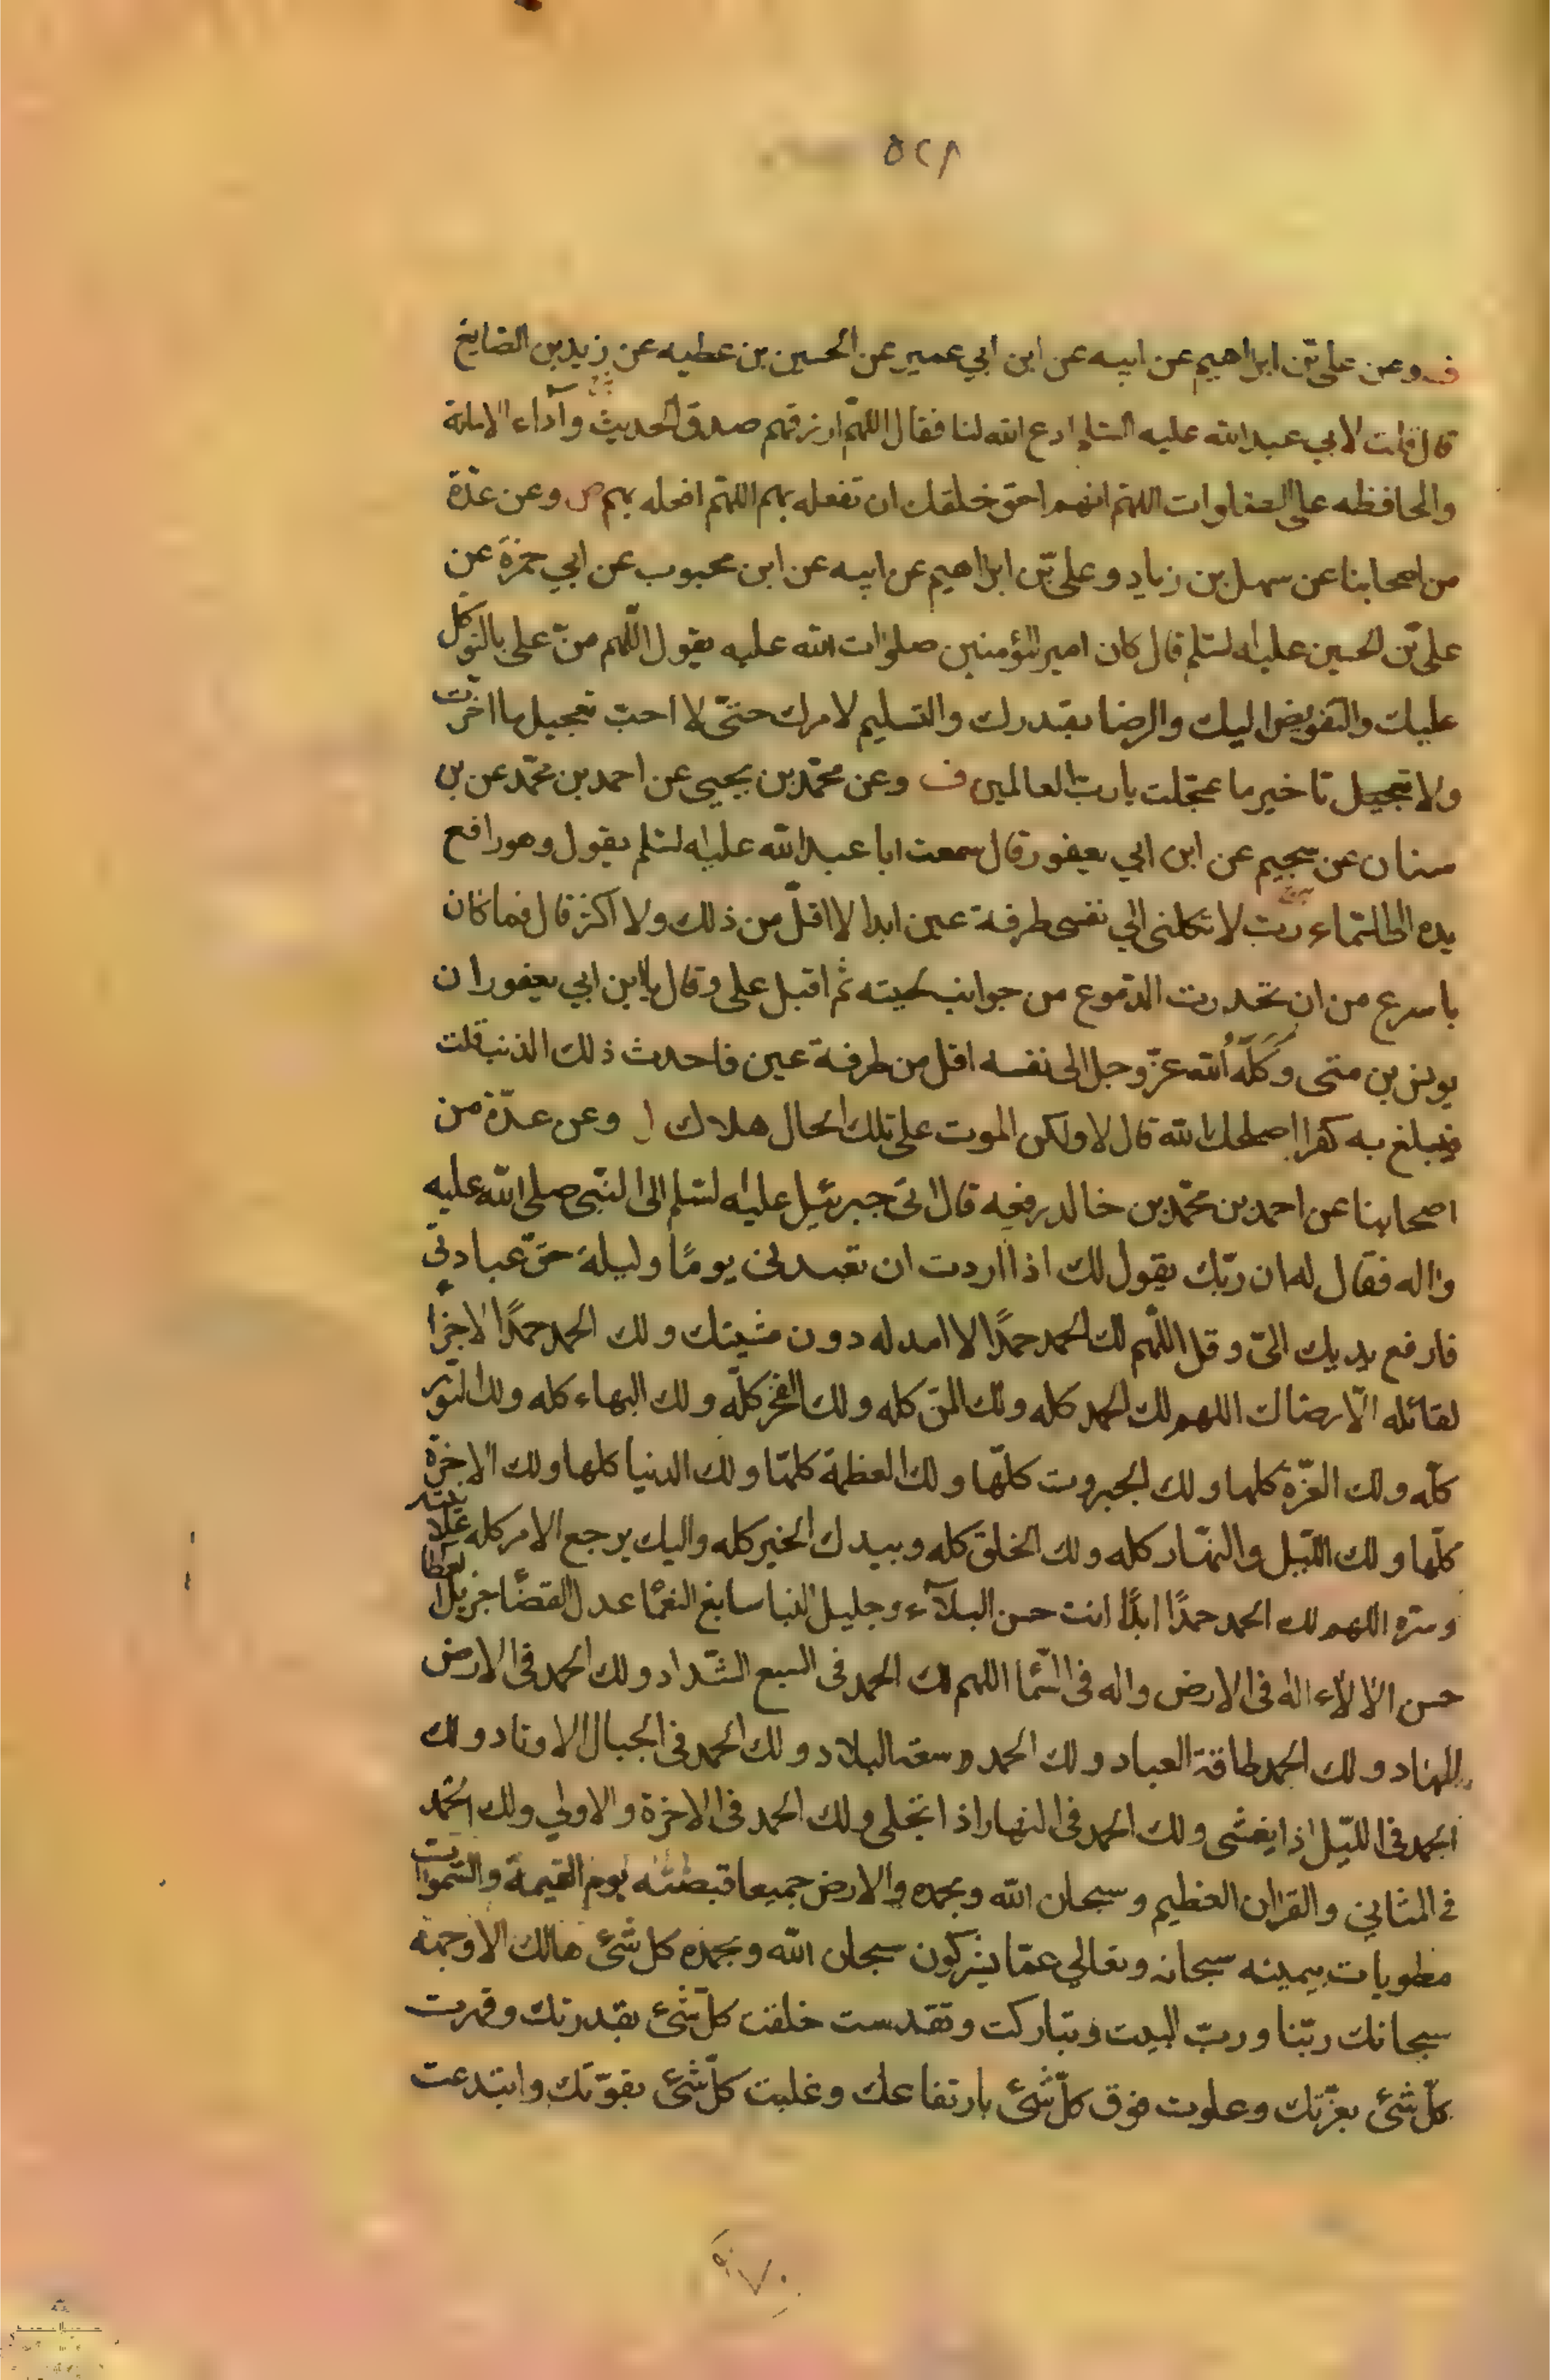 ٥٢٨
ف وعن على بن ابراهيم عن ابيه عن ابن ابي عمير عن الحسين بن عطيه عن زيد بن الصايغ
قال قلت لابي عبد الله عليه السلام ادع الله لنا فقال اللهم ارزقهم صدق الحديث وآداء الامانة
والمحافظه على الصلوات اللهم انهم احق خلقك ان تفعله بهم اللهم افعله بهم ص وعن عدّة
من اصحابنا عن سهل بن زياد وعلى بن ابراهيم عن ابيه عن ابن محبوب عن ابي حمزة عن
على بن الحسين عليه السلم قال كان امير المؤمنين صلوات الله عليه يقول اللهم منّ على بالتوكل
عليك والتفويض اليك والرضا بقدرك والتسليم لامرك حتى لا احبّ تعجيل ما اخرت
ولا تعجيل تاخير ما عجّلت يا ربّ العالمين ف وعن محمّد بن يحيى عن احمد بن محمّد عن بن
سنان عن سجيم عن ابن ابي يعفور قال سمعت ابا عبد الله عليه السلم يقول وهو رافع
يده الى السّماء ربّ لا تكلنى الي نفسى طرفة عين ابدا لا اقلّ من ذلك ولا اكثر قال فما كان
باسرع من ان تحدرت الدّموع من جوانب لحيته ثم اقبل على وقال يا ابن ابي يعفور ان
يونس بن متى وَكَلَهُ الله عزّ وجل الى نفسه اقل من طرفة عين فاحدث ذلك الذنب قلت
فيبلغ به كفرا اصلحك الله قال لا ولكن الموت على تلك الحال هلاك ل وعن عدّة من
اصحابنا عن احمد بن محمّد بن خالد رفعه قال اتى جبرئيل عليه السلم الى النبّى صلى الله عليه
واله فقال له ان ربّك يقول لك اذا اردت ان تعبدنى يومًا وليلة حقّ عبادتى
فارفع يديك الىّ وقل اللّهم لك الحمد حمدًا لا امد له دون مشيتك ولك الحمد حمدًا لا جزا
لقائله الّا رضاك اللهم لك الحمد كله ولك المنّ كله ولك الفخر كلّه ولك البهاء كله ولك النّور
كلّه ولك العزّة كلها ولك الجبروت كلّها ولك العظمة كلها ولك الدنيا كلها ولك الاخرة
كلّها ولك اللّيل والنهّار كله ولك الخلق كله وبيدك الخير كله واليك يرجع الامر كله علانيته
وسره اللهم لك الحمد حمدًا ابدًا انت حسن البلآء وجليل الثنا سابغ النعمّا عدل القضّا جزيل العطا
حسن الالآء اله فى الارض واله فى السّما اللهم لك الحمد فى السبع الشّداد ولك الحمد فى الارض
المهاد ولك الحمد طاقة العباد ولك الحمد وسعة البلاد ولك الحمد فى الجبال الاوتاد ولك
الحمد فى اللّيل اذا يغشى ولك الحمد فى النهار اذا تجلى ولك الحمد فى الاخرة والاولي ولك الحمد
في المثاني والقران العظيم وسبحان الله وبحمده والارض جميعا قبضته يوم القيمة والسّموات
مطويات بيمينه سبحانه وتعالي عمّا يشركون سبحان الله وبحمده كل شئ هالك الا وجهه
سبحانك ربّنا وربّ البيت وتباركت وتقدست خلقت كلّ شئ بقدرتك وقهرت
كلّ شئ بعزّتك وعلوت فوق كلّ شئ بارتفاعك وغلبت كلّ شئ بقوّتك وابتدعت